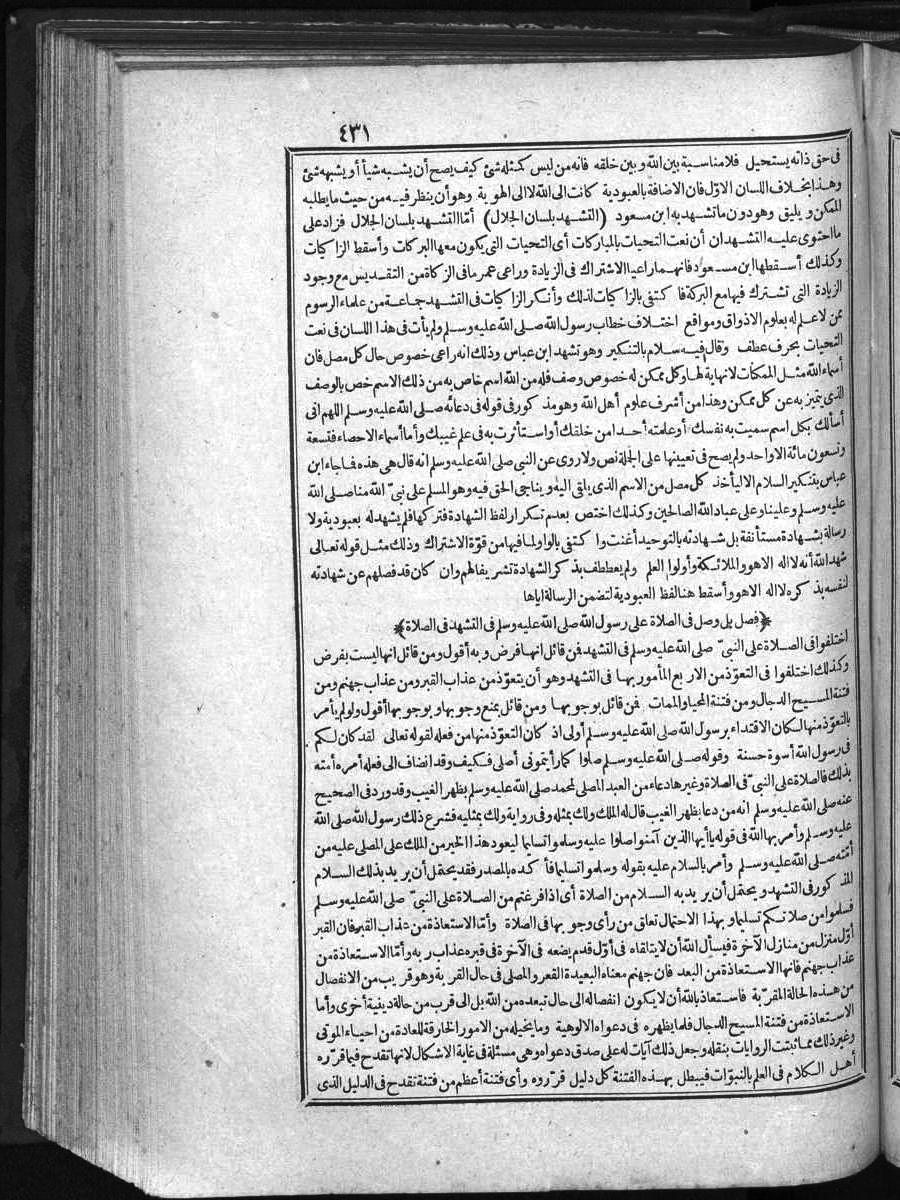 ٤٣١
فى حق ذاته يستحيل فلا مناسبة بين الله وبين خلقه فانه من ليس كمثله شئ كيف يصح أن يشبه شيأ أو يشبهه شئ
وهذا بخلاف اللسان الاوّل فان الاضافة بالعبودية كانت الى الله لا الى الهوية وهو أن ينظر فيه من حيث ما يطلبه
الممكن ويليق وهو دون ما تشهد به ابن مسعود (التشهد بلسان الجلال) أمّا التشهد بلسان الجلال فزاد على
ما احتوى عليه التشهدان أن نعت التحيات بالمباركات أى التحيات التى يكون معها البركات وأسقط الزاكيات
وكذلك أسقطها ابن مسعود فانهما راعيا الاشتراك فى الزيادة وراعى عمر ما فى الزكاة من التقديس مع وجود
الزيادة التى تشترك فيها مع البركة فاكتفى بالزاكيات لذلك وأنكر الزاكيات فى التشهد جماعة من علماء الرسوم
ممن لا علم له بعلوم الاذواق ومواقع اختلاف خطاب رسول الله صلى الله عليه وسلم ولم يأت فى هذا اللسان فى نعت
التحيات بحرف عطف وقال فيه سلام بالتنكير وهو تشهد ابن عباس وذلك انه راعى خصوص حال كل مصل فان
أسماء الله مثل الممكنات لا نهاية لها وكل ممكن له خصوص وصف فله من الله اسم خاص به من ذلك الاسم خص بالوصف
الذى يتميز به عن كل ممكن وهذا من أشرف علوم أهل الله وهو مذكور فى قوله فى دعائه صلى الله عليه وسلم اللهم انى
أسألك بكل اسم سميت به نفسك أو علمته أحدا من خلقك أو استأثرت به فى علم غيبك وأما أسماء الاحصاء فتسعة
وتسعون مائة الا واحد ولم يصح فى تعيينها على الجملة نص ولا روى عن النبى صلى الله عليه وسلم انه قال هى هذه فجاء ابن
عباس بتنكير السلام الا ليأخذ كل مصل من الاسم الذى يلقى اليه ويناجى الحق فيه وهو المسلم على نبىّ الله منا صلى الله
عليه وسلم وعلينا وعلى عباد الله الصالحين وكذلك اختص بعدم تكرار لفظ الشهادة فتركها فلم يشهد له بعبودية ولا
رسالة بشهادة مستأنفة بل شهادته بالتوحيد أغنت واكتفى بالواو لما فيها من قوّة الاشتراك وذلك مثل قوله تعالى
شهد الله أنه لا اله الا هو والملائكة وأولوا العلم ولم يعطف بذكر الشهادة تشريفا لهم وان كان قد فصلهم عن شهادته
لنفسه بذكره لا اله الا هو وأسقط هنا لفظ العبودية لتضمن الرسالة اياها
﴿فصل بل وصل فى الصلاة على رسول الله صلى الله عليه وسلم فى التشهد فى الصلاة﴾
اختلفوا فى الصلاة على النبىّ صلى الله عليه وسلم فى التشهد فمن قائل انها فرض وبه أقول ومن قائل انها ليست بفرض
وكذلك اختلفوا فى التعوّذ من الاربع المأمور بها فى التشهد وهو أن يتعوّذ من عذاب القبر ومن عذاب جهنم ومن
فتنة المسيح الدجال ومن فتنة المحيا والممات فمن قائل بوجوبها ومن قائل بمنع وجوبها وبوجوبها أقول ولو لم يأمر
بالتعوّذ منها لكان الاقتداء برسول الله صلى الله عليه وسلم أولى اذ كان التعوّذ منها من فعله لقوله تعالى لقد كان لكم
فى رسول الله أسوة حسنة وقوله صلى الله عليه وسلم صلوا كما رأيتمونى أصلى فكيف وقد انضاف الى فعله أمره أمته
بذلك فالصلاة على النبىّ فى الصلاة وغيرها دعاء من العبد المصلى لمحمد صلى الله عليه وسلم بظهر الغيب وقد ورد فى الصحيح
عنه صلى الله عليه وسلم انه من دعا بظهر الغيب قال له الملك ولك بمثله وفى رواية ولك بمثليه فشرع ذلك رسول الله صلى الله
عليه وسلم وأمر بها الله فى قوله يا أيها الذين آمنوا صلوا عليه وسلموا تسليما ليعود هذا الخير من الملك على المصلى عليه من
أمّته صلى الله عليه وسلم وأمر بالسلام عليه بقوله وسلموا تسليما فأكده بالمصدر فقد يحتمل أن يريد بذلك السلام
المذكور فى التشهد ويحتمل أن يريد به السلام من الصلاة أى اذا فرغتم من الصلاة على النبىّ صلى الله عليه وسلم
فسلموا من صلاتكم تسليما وبهذا الاحتمال تعلق من رأى وجوبها فى الصلاة وأمّا الاستعاذة من عذاب القبر فان القبر
أوّل منزل من منازل الآخرة فيسأل الله أن لا يتلقاه فى أوّل قدم يضعه فى الآخرة فى قبره عذاب ربه وأمّا الاستعاذة من
عذاب جهنم فانها الاستعاذة من البعد فان جهنم معناه البعيدة القعر والمصلى فى حال القربة وهو قريب من الانفصال
من هذه الحالة المقرّبة فاستعاذ بالله أن لا يكون انفصاله الى حال تبعده من الله بل الى قرب من حالة دينية أخرى وأما
الاستعاذة من فتنة المسيح الدجال فلما يظهره فى دعواه الالوهية وما يخيله من الامور الخارقة للعادة من احياء الموتى
وغير ذلك مما ثبتت الروايات بنقله وجعل ذلك آيات له على صدق دعواه وهى مسئلة فى غاية الاشكال لانها تقدح فيما قرّره
أهل الكلام فى العلم بالنبوّات فيبطل بهذه الفتنة كل دليل قرّروه وأى فتنة أعظم من فتنة تقدح فى الدليل الذى